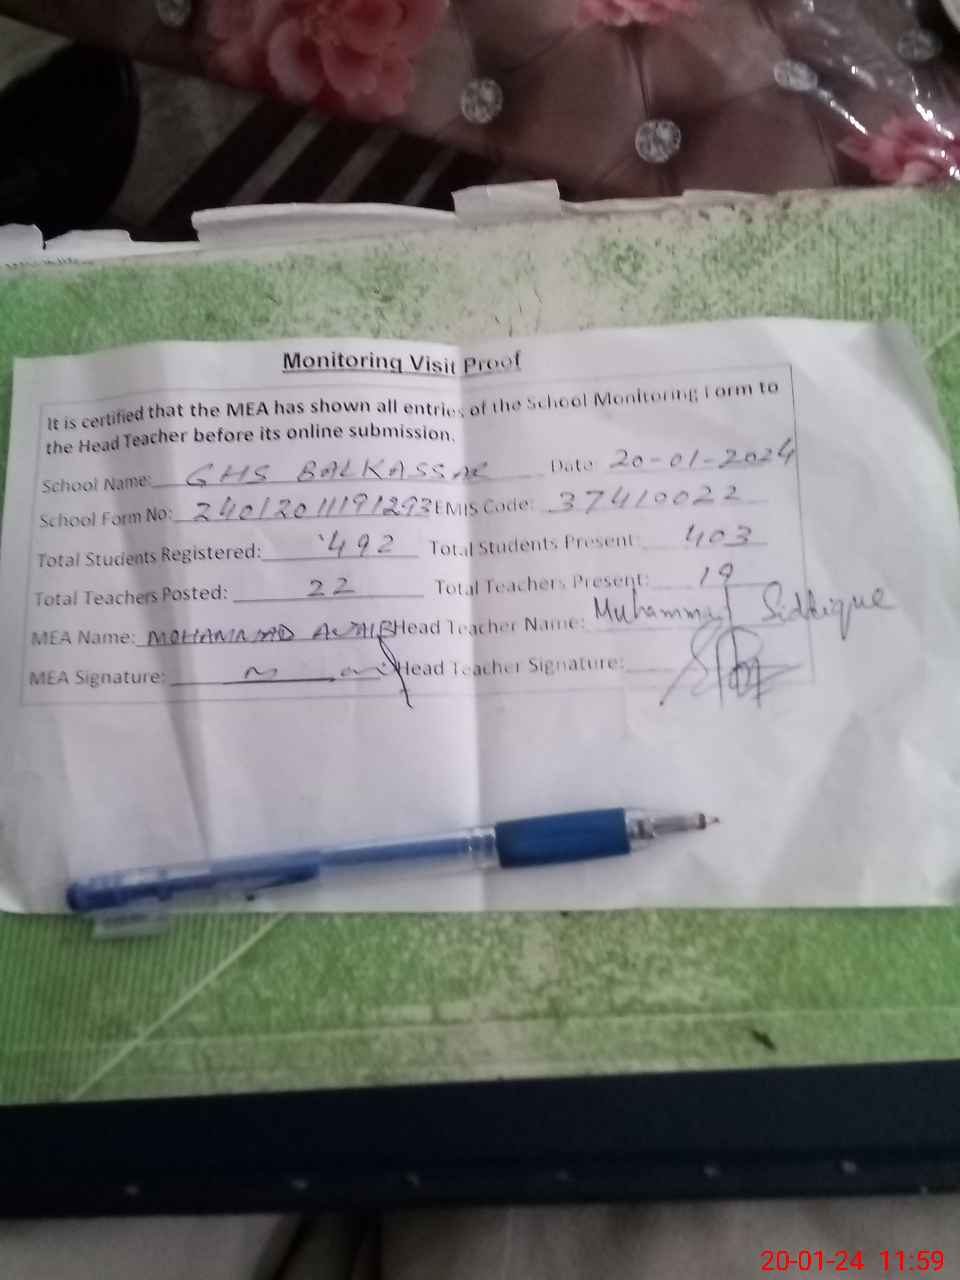 Monitoring Visit Proof
It is certified that the MEA has shown all entries of the School Monitoring Form to
the Head Teacher before its online submission.
School Name: GHS BALKASSAR Date: 20-01-2024
School Form No: 24012011191293 EMIS Code: 37410022
Total Students Registered: 492 Total Students Present: 403
Total Teachers Posted: 22 Total Teachers Present: 19
MEA Name: MOHAMMAD Head Teacher Name: Muhammad Siddique
MEA Signature: Head Teacher Signature:
20-01-24 11:59